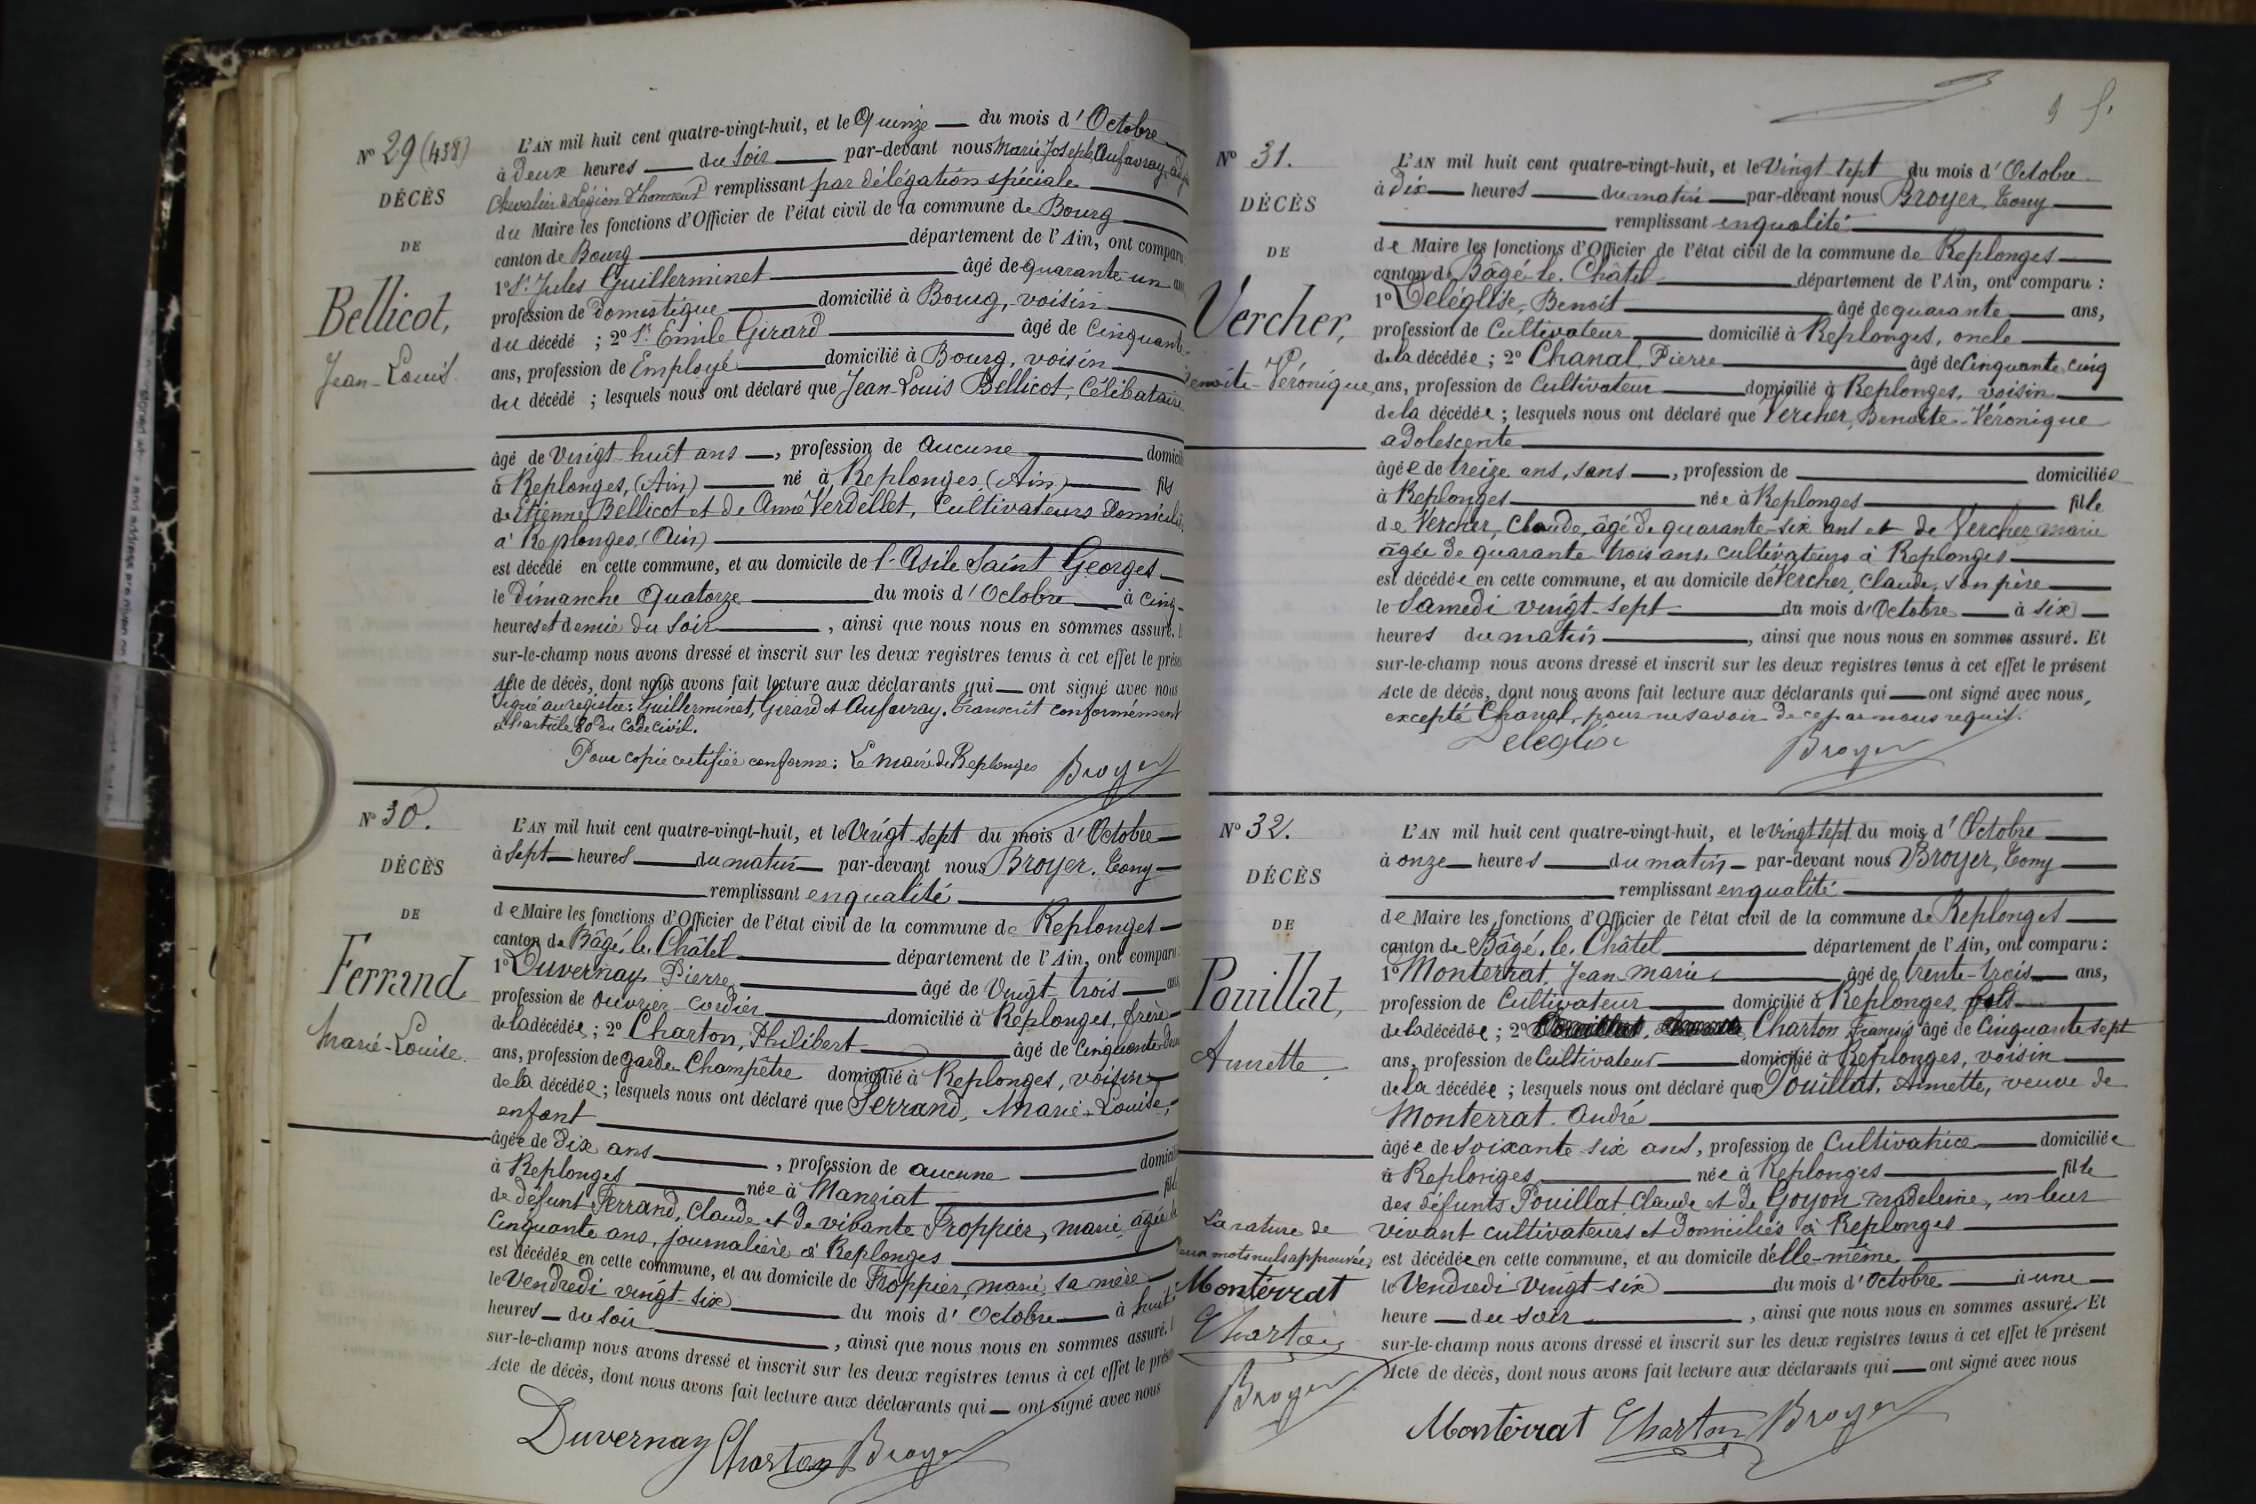 Nº 29 (438)
DÉCÈS
DE
Bellicot,
Jean-Louis.
L'AN mil huit cent quatre-vingt-huit, et le Quinze du mois d'Octobre
à deux heures du soir par-devant nous Marie Joseph Aufavray, adj
Chevalier de Légion d'honneur remplissant par délégation spéciale
du Maire les fonctions d'Officier de l'état civil de la commune de Bourg
canton de Bourg département de l'Ain, ont comparu
1º Sr. Jules Guillerminet âgé de quarante-un ans
profession de domestique domicilié à Bourg, voisin
du décédé ; 2º Sr. Emile Girard âgé de Cinquante
ans, profession de Employé domicilié à Bourg, voisin
du décédé ; lesquels nous ont déclaré que Jean-Louis Bellicot, Célibataire
âgé de vingt-huit ans, profession de aucune domicil
à Replonges, (Ain) né à Replonges (Ain) fils
de Etienne Bellicot et de Anne Verdellet, Cultivateurs domiciliés
à Replonges (Ain)
est décédé en cette commune, et au domicile de l'Asile Saint Georges
le dimanche quatorze du mois d'Octobre à cinq
heures et demie du soir, ainsi que nous nous en sommes assuré.
sur-le-champ nous avons dressé et inscrit sur les deux registres tenus à cet effet le prése
Acte de décès, dont nous avons fait lecture aux déclarants qui ont signé avec nous
Signé au registre: Guillerminet, Girard et Aufavray. Transcrit conformément
à l'article 80 du Code civil.
Pour copie certifiée conforme: Le maire de Replonges Broyer
Nº 30.
DÉCÈS
DE
Ferrand
Marie-Louise.
L'AN mil huit cent quatre-vingt-huit, et le Vingt-sept du mois d'Octobre
à sept heures du matin par-devant nous Broyer, Tony
remplissant en qualité
de Maire les fonctions d'Officier de l'état civil de la commune de Replonges
canton de Bâgé-le-Châtel département de l'Ain, ont comparu
1º Duvernay, Pierre âgé de Vingt-trois ans
profession de ouvrier cordier domicilié à Replonges, frère
de la décédée ; 2º Charton, Philibert âgé de Cinquante-deux
ans, profession de garde-Champêtre domicilié à Replonges, voisin
de la décédée ; lesquels nous ont déclaré que Ferrand, Marie-Louise,
enfant
âgée de dix ans, profession de aucune domicil
à Replonges née à Manziat fille
de défunt Ferrand, Claude et de vivante Froppier, marie, âgée de
Cinquante ans, journalière à Replonges
est décédée en cette commune, et au domicile de Froppier, marie, sa mère
le Vendredi vingt-six du mois d'Octobre à huit
heures du soir, ainsi que nous nous en sommes assuré.
sur-le-champ nous avons dressé et inscrit sur les deux registres tenus à cet effet le prése
Acte de décès, dont nous avons fait lecture aux déclarants qui ont signé avec nous
Duvernay Charton Broyer
Nº 31.
DÉCÈS
DE
Vercher,
Benoite-Véronique
L'AN mil huit cent quatre-vingt-huit, et le Vingt-sept du mois d'Octobre
à dix heures du matin par-devant nous Broyer, Tony
remplissant en qualité
de Maire les fonctions d'Officier de l'état civil de la commune de Replonges
canton de Bâgé-le-Châtel département de l'Ain, ont comparu :
1º Deléglise, Benoît âgé de quarante ans,
profession de Cultivateur domicilié à Replonges, oncle
de la décédée ; 2º Chanal, Pierre âgé de Cinquante-cinq
ans, profession de Cultivateur domicilié à Replonges, voisin
de la décédée ; lesquels nous ont déclaré que Vercher, Benoite-Véronique
adolescente
âgée de treize ans, sans, profession de domiciliée
à Replonges née à Replonges fille
de Vercher, Claude, âgé de quarante-six ans et de Vercher marie
âgée de quarante-trois ans, cultivateurs à Replonges
est décédée en cette commune, et au domicile de Vercher, Claude, son père
le Samedi vingt-sept du mois d'Octobre à six
heures du matin, ainsi que nous nous en sommes assuré. Et
sur-le-champ nous avons dressé et inscrit sur les deux registres tenus à cet effet le présent
Acte de décès, dont nous avons fait lecture aux déclarants qui ont signé avec nous,
excepté Chanal, pour ne savoir de ce par nous requis.
Deléglise Broyer
Nº 32.
DÉCÈS
DE
Pouillat,
Annette.
L'AN mil huit cent quatre-vingt-huit, et le vingt-sept du mois d'Octobre
à onze heures du matin par-devant nous Broyer, Tony
remplissant en qualité
de Maire les fonctions d'Officier de l'état civil de la commune de Replonges
canton de Bâgé-le-Châtel département de l'Ain, ont comparu :
1º Monterrat, Jean-marie âgé de trente-trois ans,
profession de Cultivateur domicilié à Replonges, fils
de la décédée ; 2º Charton, François âgé de Cinquante-sept
ans, profession de Cultivateur domicilié à Replonges, voisin
de la décédée ; lesquels nous ont déclaré que Pouillat, Annette, veuve de
Monterrat André
âgée de soixante-six ans, profession de Cultivatrice domiciliée
à Replonges née à Replonges fille
des défunts Pouillat, Claude et de Goyon madeleine, en leur
vivant cultivateurs et domiciliés à Replonges
est décédée en cette commune, et au domicile d'elle-même
le Vendredi vingt-six du mois d'Octobre à une
heure du soir, ainsi que nous nous en sommes assuré. Et
sur-le-champ nous avons dressé et inscrit sur les deux registres tenus à cet effet le présent
Acte de décès, dont nous avons fait lecture aux déclarants qui ont signé avec nous
Monterrat Charton Broyer
La rature de
deux mots nuls approuvée,
Monterrat
Charton
Broyer